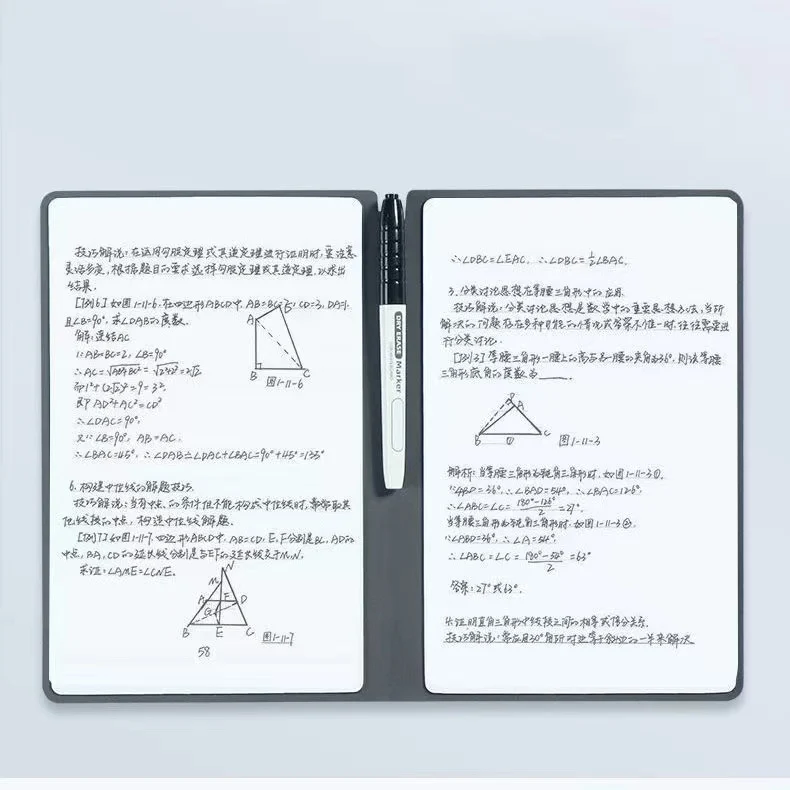 技巧解说:在运用勾股定理或其逆定理进行证明时,要注意
灵活多变,根据题目的要求选择勾股定理或其逆定理,以求出
结果.
[例6]如图1-11-6.在四边形ABCD中,AB=BC=2,CD=3,DA=1,
且∠B=90°,求∠DAB的度数.
解:连结AC
∵AB=BC=2,∠B=90°
∴AC=√AB²+BC²=√2²+2²=2√2
而1²+(2√2)²=9=3².
即AD²+AC²=CD²
∴∠DAC=90°,
又∵∠B=90°, AB=AC,
∴∠BAC=45°,∴∠DAB=∠DAC+∠BAC=90°+45°=135°
A
B
C
图1-11-6
6.构造中位线的解题技巧.
技巧解说:当有中点的条件但不能构成中位线时,常常取其
他线段的中点,构造中位线解题.
[例7]如图1-11-7,四边形ABCD中,AB=CD,E,F分别是BC,AD的
中点,BA,CD的延长线分别是与EF的延长线交于M,N,
求证:∠AME=∠CNE.
N
M
A F D
G
B E C
图1-11-7
58
DRY ERASE
Marker
∴∠DBC=∠EAC,∴∠DBC=½∠BAC.
3.分类讨论思想在等腰三角形中的应用.
技巧解说:分类讨论思想是数学中的重要思想方法,当所
解决的问题存在多种可能的情况或答案不唯一时,往往需要进
行分类讨论.
[例3]等腰三角形一腰上的高与另一腰的夹角为36°,则该等腰
三角形底角的度数为______.
D
A
B ① C
图1-11-3
解析:当等腰三角形为钝角三角形时,如图1-11-3①,
∵∠ABD=36°,∴∠BAD=54°,∴∠BAC=126°.
∴∠ABC=∠C=(180°-126°)/2=27°.
当等腰三角形为锐角三角形时,如图1-11-3②,
∵∠ABD=36°,∴∠A=54°.
∴∠ABC=∠C=(180°-54°)/2=63°
答案:27°或63°.
4.证明直角三角形中线段之间的相等或倍分关系.
技巧解说:常应用30°角所对边等于斜边的一半来解决